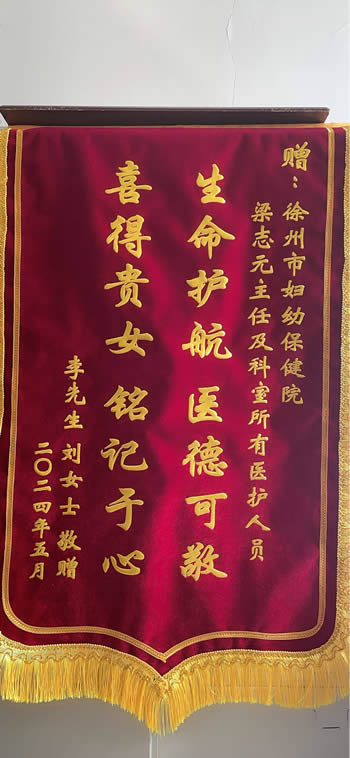 赠：徐州市妇幼保健院
梁志元主任及科室所有医护人员
生命护航 医德可敬
喜得贵女 铭记于心
李先生 刘女士 敬赠
二〇二四年五月